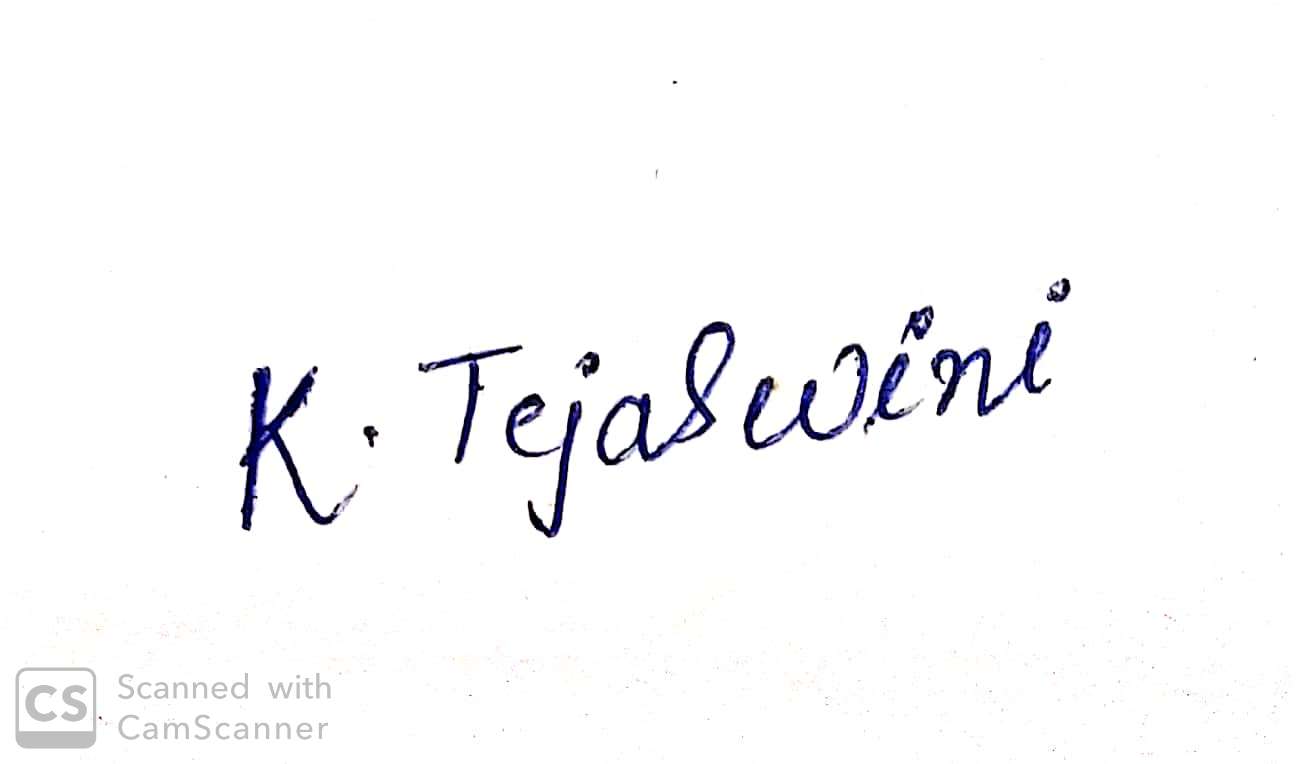 K. Tejaswini
CS Scanned with
CamScanner